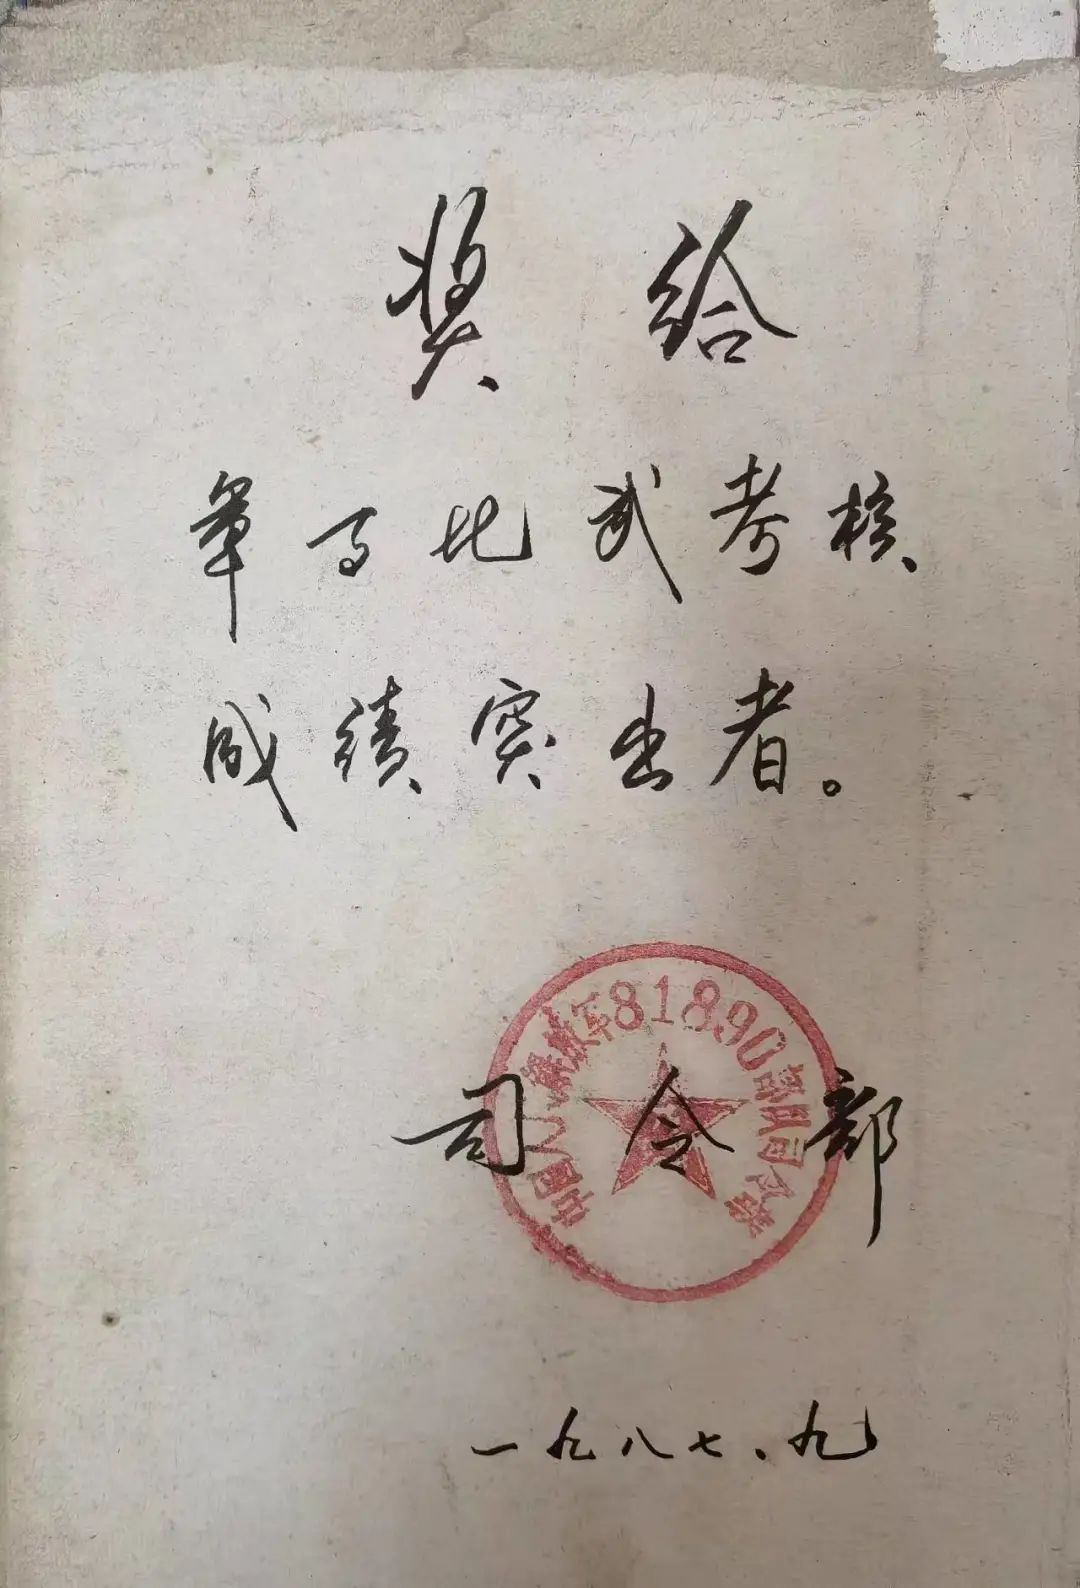 奖给
军事比武考核
成绩突出者。
中国人民解放军81890部队司令部
司令部
一九八七、九